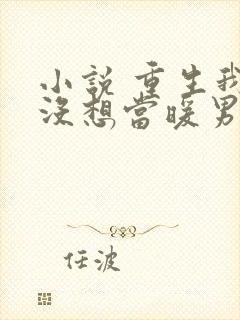 小說 重生我
沒想當暖男
任波